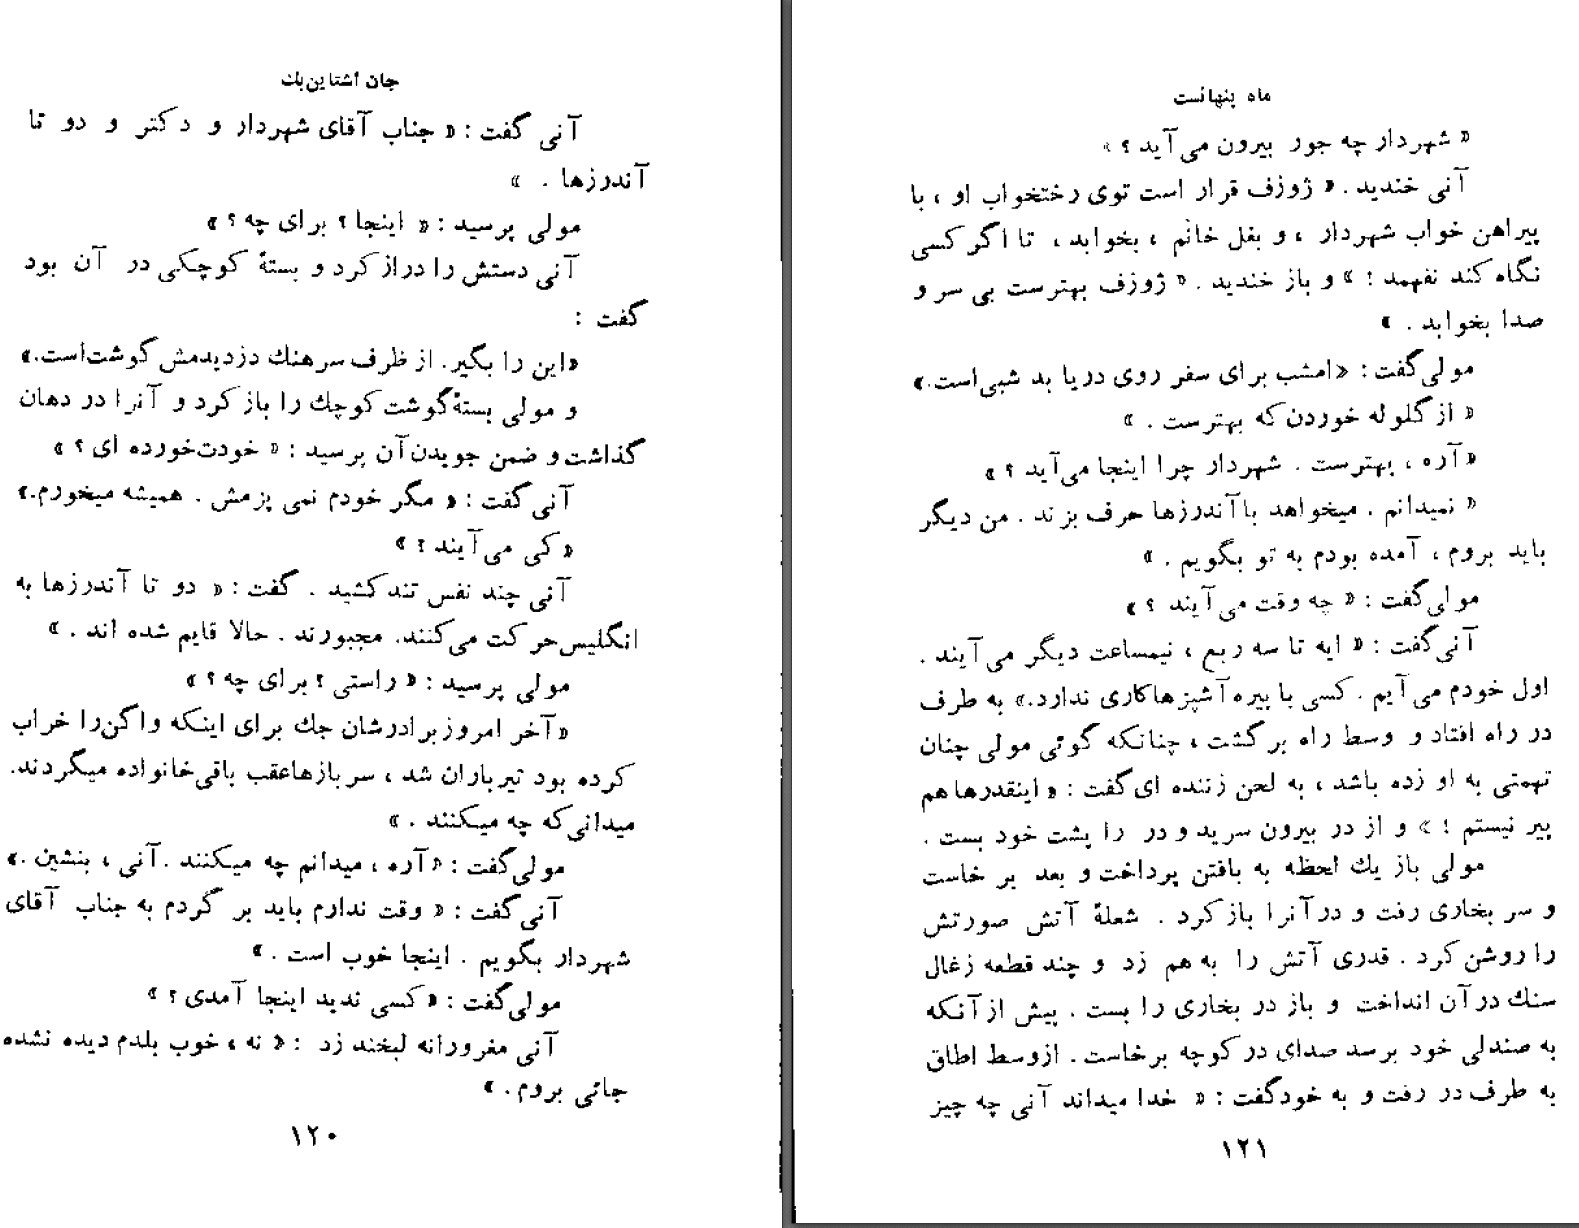 جان اشتاین‌بك
آنی گفت : « جناب آقای شهردار و دکتر و دو تا
آندرزها . »
مولی پرسید : « اینجا ؟ برای چه ؟ »
آنی دستش را دراز کرد و بستهٔ کوچکی در آن بود
گفت :
«این را بگیر. از ظرف سرهنك دزدیدمش گوشت‌است.»
و مولی بستهٔ گوشت کوچك را باز کرد و آنرا در دهان
گذاشت و ضمن جویدن آن پرسید : « خودت‌خورده ای ؟ »
آنی گفت : « مگر خودم نمی پزمش . همیشه میخورم.»
« کی می آیند ؟ »
آنی چند نفس تند کشید . گفت : « دو تا آندرزها به
انگلیس‌حرکت می‌کنند. مجبورند . حالا قایم شده اند . »
مولی پرسید : « راستی ؟ برای چه ؟ »
«آخر امروز برادرشان جك برای اینکه واگن‌را خراب
کرده بود تیرباران شد ، سربازهاعقب باقی‌خانواده میگردند.
میدانی‌که چه میکنند . »
مولی‌گفت : «آره ، میدانم چه میکنند . آنی ، بنشین .»
آنی‌گفت : « وقت ندارم باید بر گردم به جناب آقای
شهردار بگویم . اینجا خوب است . »
مولی‌گفت : «کسی ندید اینجا آمدی ؟ »
آنی مغرورانه لبخند زد : « نه ، خوب بلدم دیده نشده
جائی بروم . »
۱۲۰
ماه پنهانست
« شهردار چه جور بیرون می‌آید ؟ »
آنی خندید . « ژوزف قرار است توی رختخواب او ، با
پیراهن خواب شهردار ، و بغل خانم ، بخوابد ، تا اگر کسی
نگاه کند نفهمد ! » و باز خندید . « ژوزف بهترست بی سر و
صدا بخوابد . »
مولی‌گفت : «امشب برای سفر روی دریا بد شبی‌است.»
« از گلوله خوردن که بهترست . »
«آره ، بهترست . شهردار چرا اینجا می‌آید ؟ »
« نمیدانم . میخواهد با آندرزها حرف بزند . من دیگر
باید بروم ، آمده بودم به تو بگویم . »
مولی‌گفت : « چه وقت می‌آیند ؟ »
آنی‌گفت : « ایه تا سه ربع ، نیمساعت دیگر می‌آیند .
اول خودم می‌آیم . کسی با بیره آشپزهاکاری ندارد.» به طرف
در راه افتاد و وسط راه برگشت ، چنانکه گوئی مولی چنان
تهمتی به او زده باشد ، به لحن زننده ای‌گفت : « اینقدرها هم
پیر نیستم ! » و از در بیرون سرید و در را پشت خود بست .
مولی باز یك لحظه به بافتن پرداخت و بعد بر خاست
و سر بخاری رفت و در آنرا باز کرد . شعلهٔ آتش صورتش
را روشن کرد . قدری آتش را به هم زد و چند قطعه زغال
سنك در آن انداخت و باز در بخاری را بست . پیش از آنکه
به صندلی خود برسد صدای در کوچه برخاست . از وسط اطاق
به طرف در رفت و به خودگفت : « خدا میداند آنی چه چیز
۱۲۱